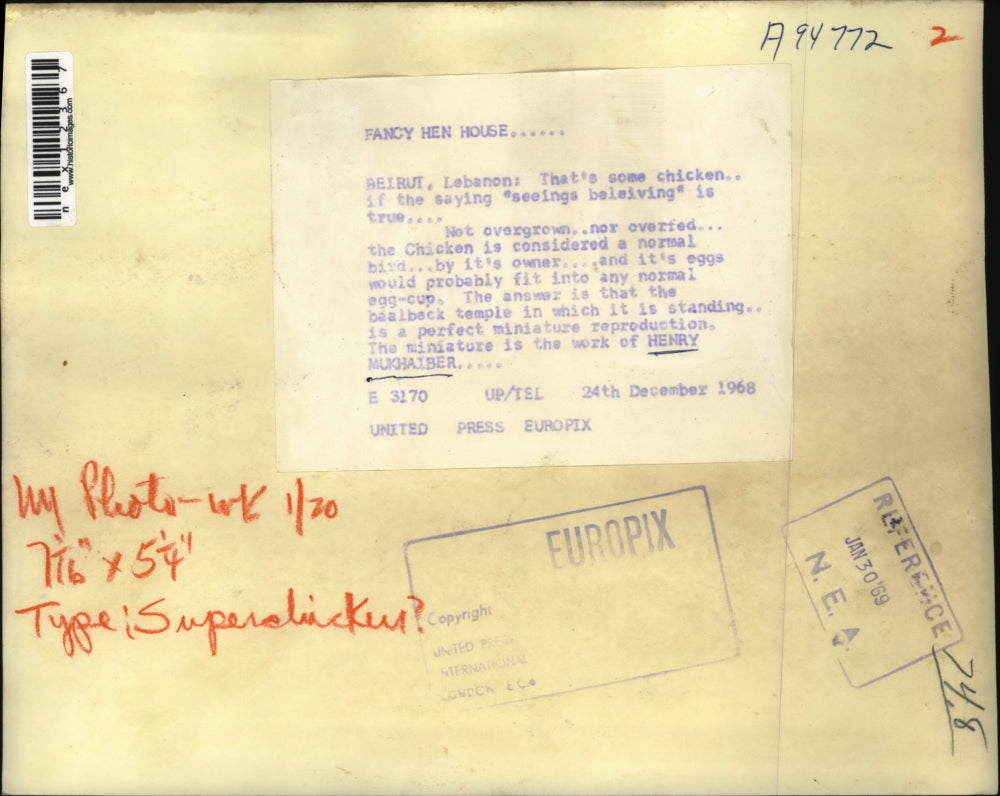 A94772 2
www.historicimages.com
FANCY HEN HOUSE......
BEIRUT, Lebanon: That's some chicken..
if the saying "seeings beleiving" is
true....
Not overgrown..nor overfed...
the Chicken is considered a normal
bird...by it's owner....and it's eggs
would probably fit into any normal
egg-cup. The answer is that the
baalbeck temple in which it is standing..
is a perfect miniature reproduction.
The miniature is the work of HENRY
MUKHAIBER.....
E 3170 UP/TEL 24th December 1968
UNITED PRESS EUROPIX
NY Photo-wk 1/20
7 1/16" x 5 1/4"
Type: Superchicken?
EUROPIX
Copyright
UNITED PRESS
INTERNATIONAL
LONDON E.C.4
REFERENCE
JAN 30 '69
N. E. A.
74.8